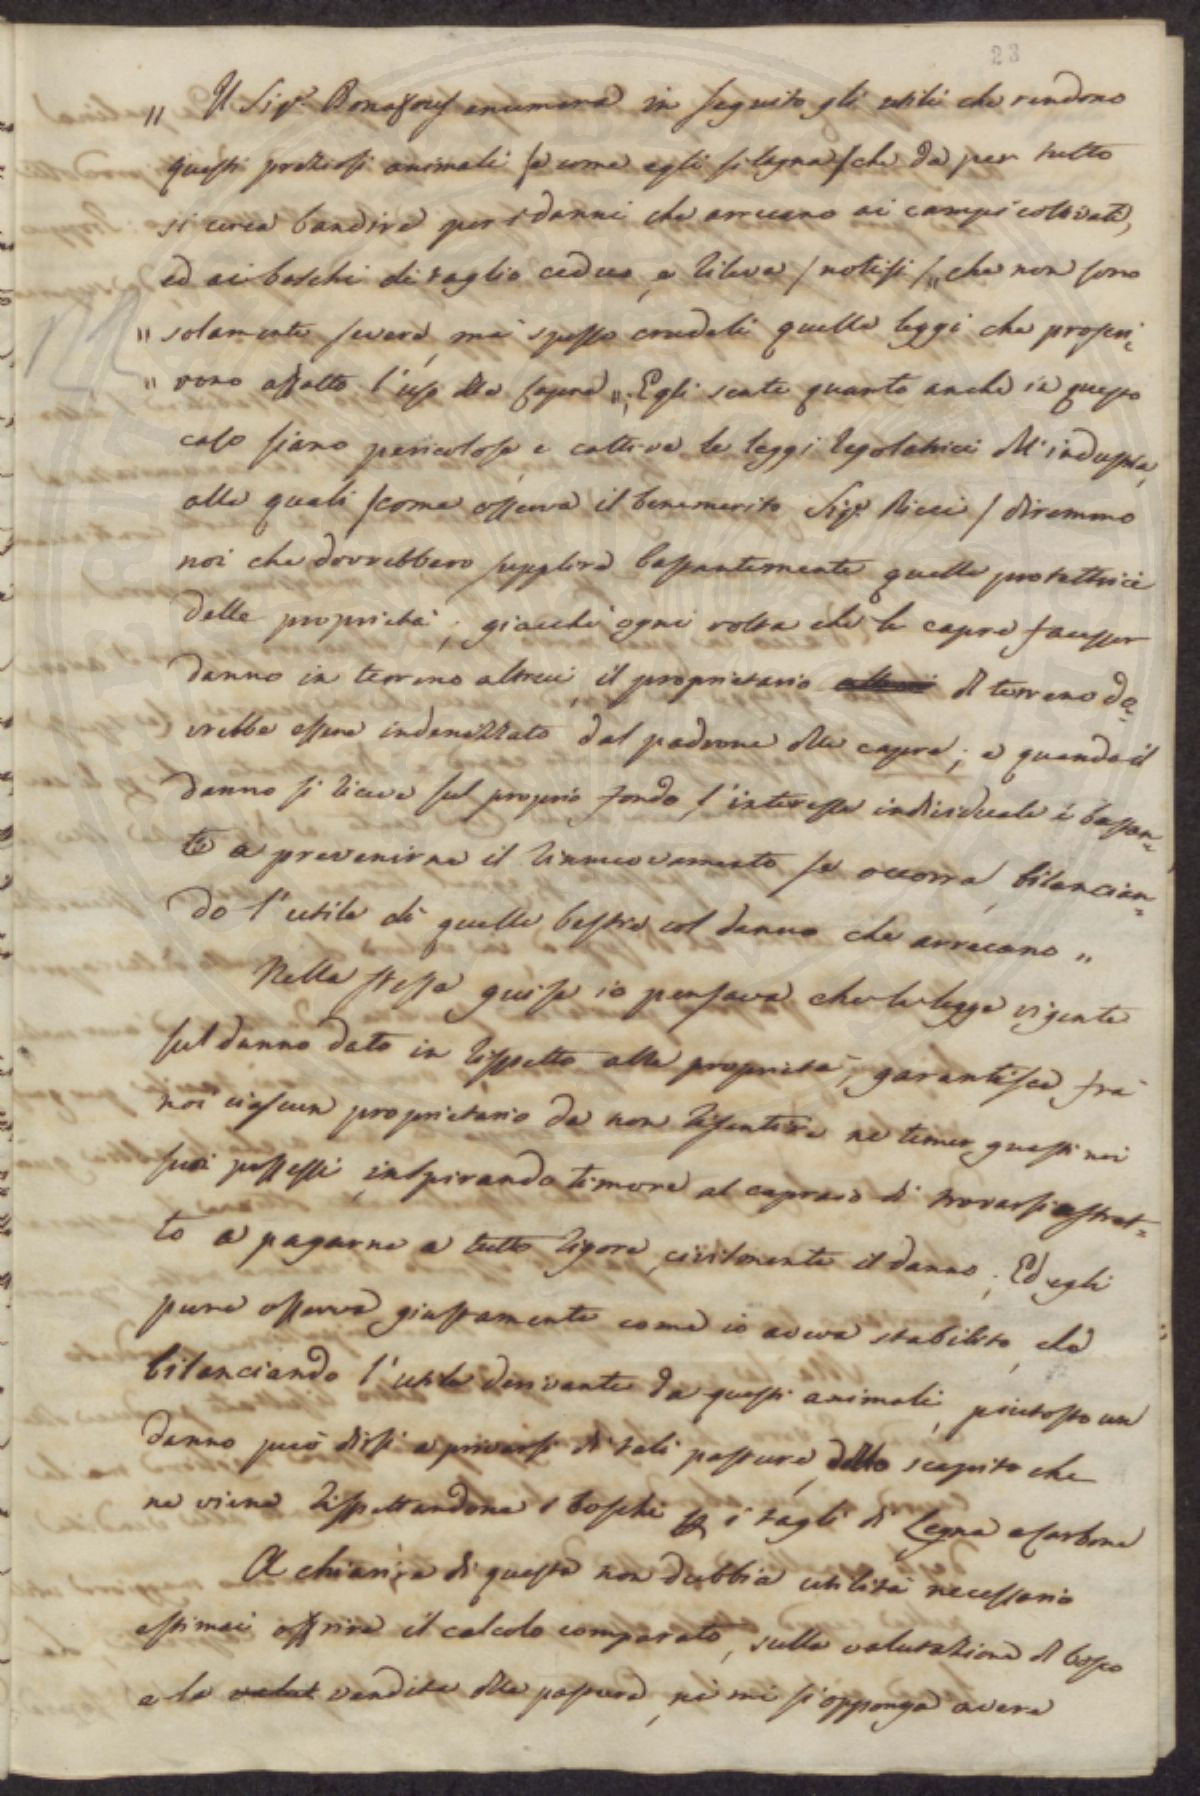 23
" Il Sig.r Bonafous enumera in seguito gli utili che rendono
questi preziosi animali /e come egli si lagna/ che da per tutto
si cerca bandire per i danni che arrecano ai campi coltivati,
ed ai boschi di taglio ceduo, e rileva /notisi/ „ che non sono
" solamente severe, ma spesso crudeli quelle leggi che proscri=
" vono affatto l'uso delle Capre „. Egli sente quanto anche in questo
caso siano pericolose, e cattive le leggi regolatrici dell'industria,
alle quali /come osserva il benemerito Sig.r Ricci/ diremmo
noi che dovrebbero supplire bastantemente quelle protettrici
delle proprietà; giacchè ogni volta che le capre facesser
danno in terreno altrui, il proprietario altrui del terreno do=
vrebbe essere indenizzato dal padrone delle capre; e quando il
danno si riceve sul proprio fondo, l'interesse individuale è bastan=
te a prevenirne il rinnuovamento se occorra, bilancian=
do l'utile di quelle bestie col danno che arrecano „
Nella stessa guisa io pensava che la legge vigente
sul danno dato in rispetto alla proprietà, garantisce frà
noi ciascun proprietario da non risentire ne temer guasti nei
suoi possessi, inspirando timore al capraio di trovarsi astret=
to a pagarne a tutto rigore civilmente il danno; Ed egli
pure osserva giustamente come io aveva stabilito, che
bilanciando l'utile derivante da questi animali, piutosto un
danno può dirsi a privarsi di tali pasture, dello scapito che
ne viene rispettandone i boschi i tagli di Legna e Carbone
A chiarire di questa non dubbia utilità necessario
estimai offrire il calcolo comparato, sulla valutazione del bosco
e la valut vendita della pastura, nè mi si opponga avere